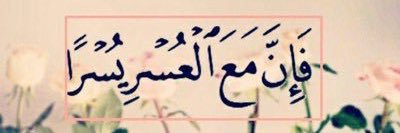 فَإِنَّ مَعَ ٱلْعُسْرِ يُسْرًا